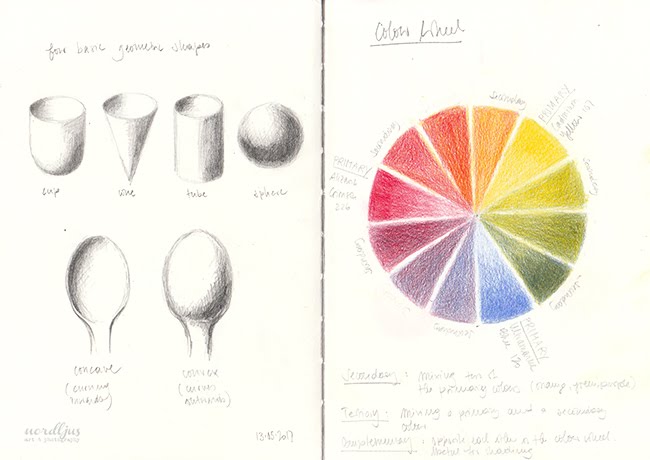 four basic geometric shapes
cup
cone
tube
sphere
concave
(curving
inwards)
convex
(curves
outwards)
nordljus
art & photography
Colour Wheel
Secondary
PRIMARY
Cadmium
Yellow 107
Secondary
Secondary
PRIMARY
Ultramarine
Blue 120
Secondary
Secondary
PRIMARY
226
Secondary
Secondary : Mixing two of
the primary colours (orange, green, purple)
Ternary : Mixing a primary and a secondary
colour
Complementary : opposite each other in the colour wheel.
Useful for shading